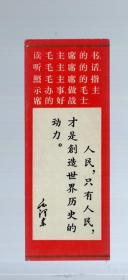 读毛主席的书
听毛主席的话
照毛主席的指
示办事做毛主
席的好战士
人民，只有人民，
才是創造世界历史的
动力。
毛泽东